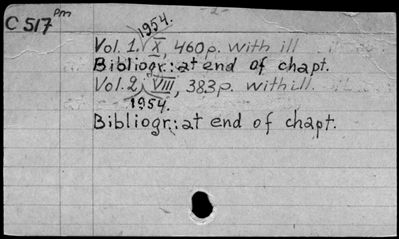 C 517 pm
- 2 -
1954.
Vol. 1. X, 460p. with ill
Bibliogr.: at end of chapt.
Vol. 2, VIII, 383p. with ill.
1954.
Bibliogr.: at end of chapt.